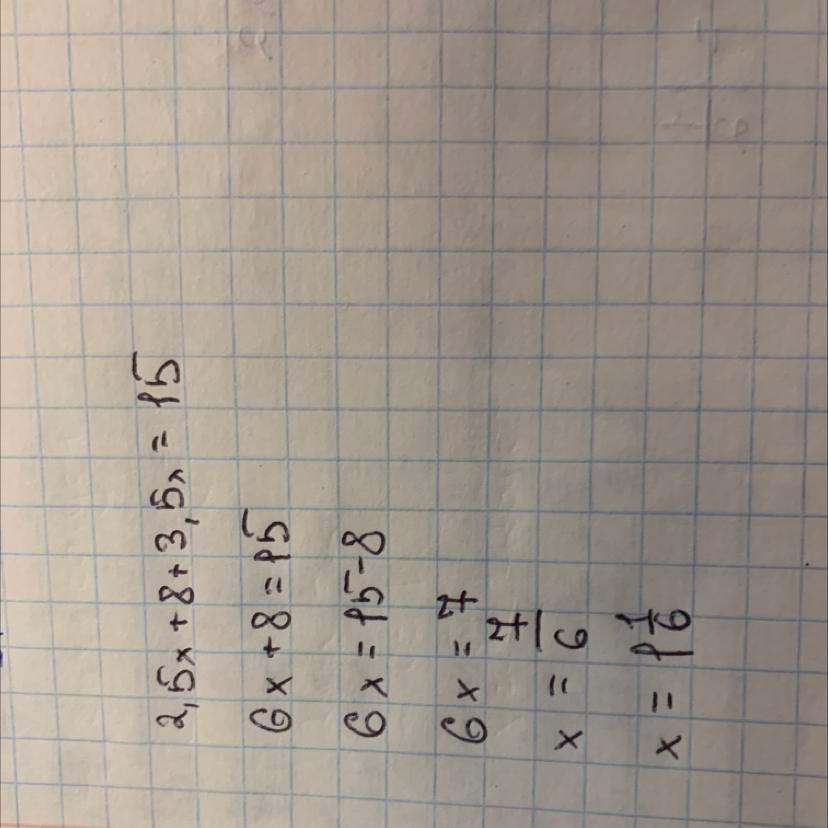 2,5x + 8 + 3,5x = 15
6x + 8 = 15
6x = 15 - 8
6x = 7
x = 7/6
x = 1 1/6